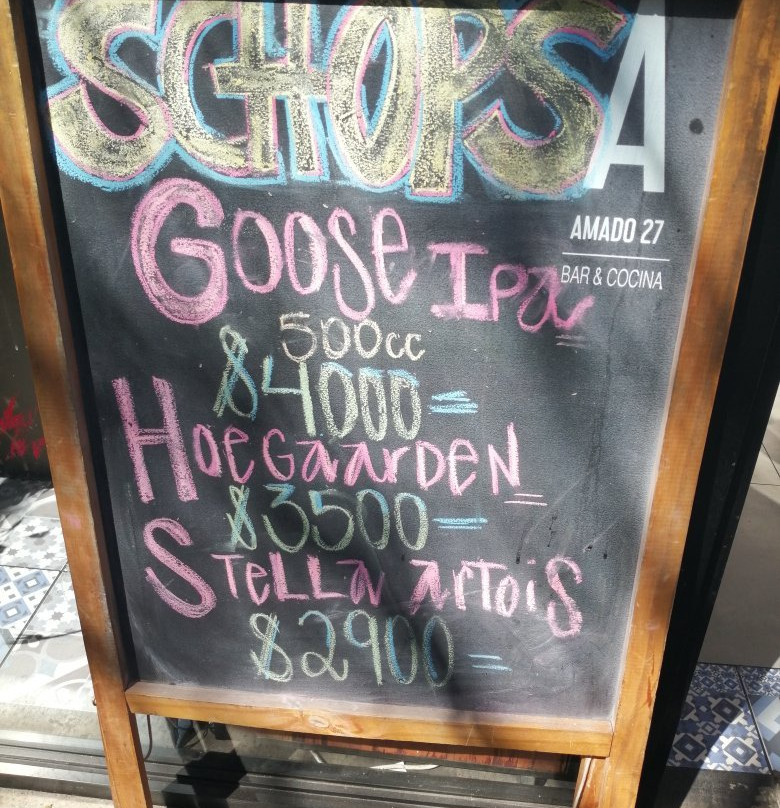 SCHOPS
A
AMADO 27
BAR & COCINA
Goose Ipa
500cc
$4000=
HoeGaarDeN
$3500=
STeLLa arTois
$2900=